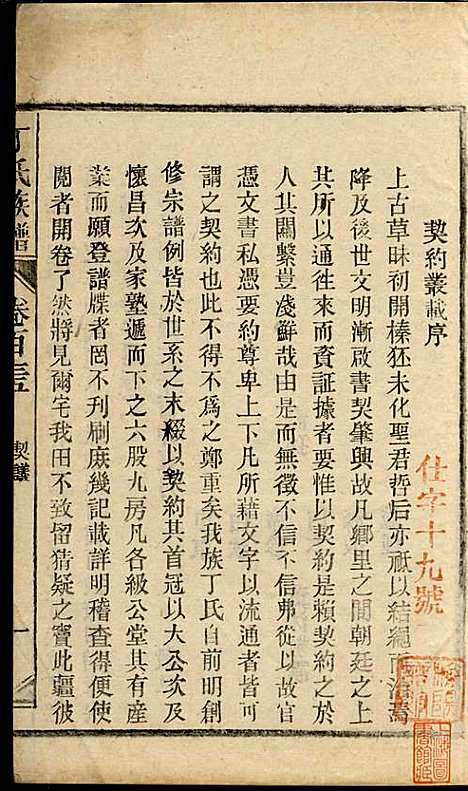 契約叢載序
上古草昧初開榛狉未化聖君哲后亦祗以結繩而治焉
降及後世文明漸啟書契肇興故凡鄉里之間朝廷之上
其所以通往來而資証據者莫不以契約是賴契約之於
人其關繫豈淺鮮哉由是而無徵不信不信弗從以故官
憑文書私憑要約尊卑上下凡所藉文字以流通者皆可
謂之契約也不得不為之鄭重矣我族丁氏自前明創
修宗譜例皆於世系之末綴以契約其首冠以大公次及
懷昌次及家塾遞而下之六股九房凡各級公堂其有產
業而願登譜牒者罔不刊刷庶幾記載詳明稽查得便使
閱者開卷了然將見爾宅我田不致留猜疑之竇此疆彼
丁氏族譜
卷百三
契議
一
仕字十九號